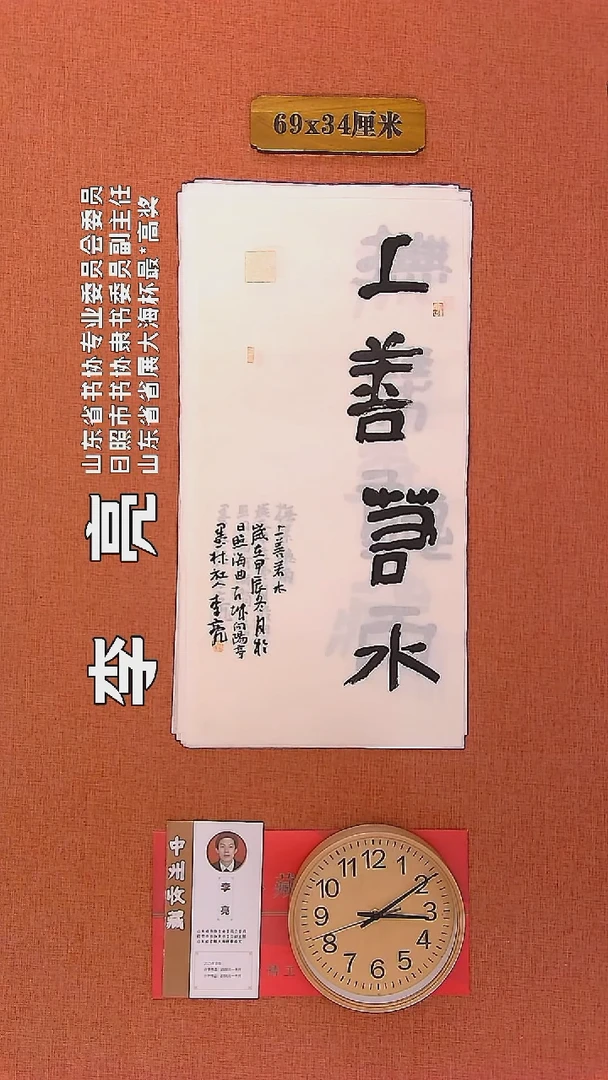 69x34厘米
山东省书协专业委员会委员
日照市书协隶书委员副主任
山东省省展大海杯最*高奖
李亮
上善若水
上善若水
歲在甲辰冬月於
日照海曲古城向陽亭
墨林社人李亮
李亮
藏
12
1
2
3
4
5
6
7
8
9
10
11